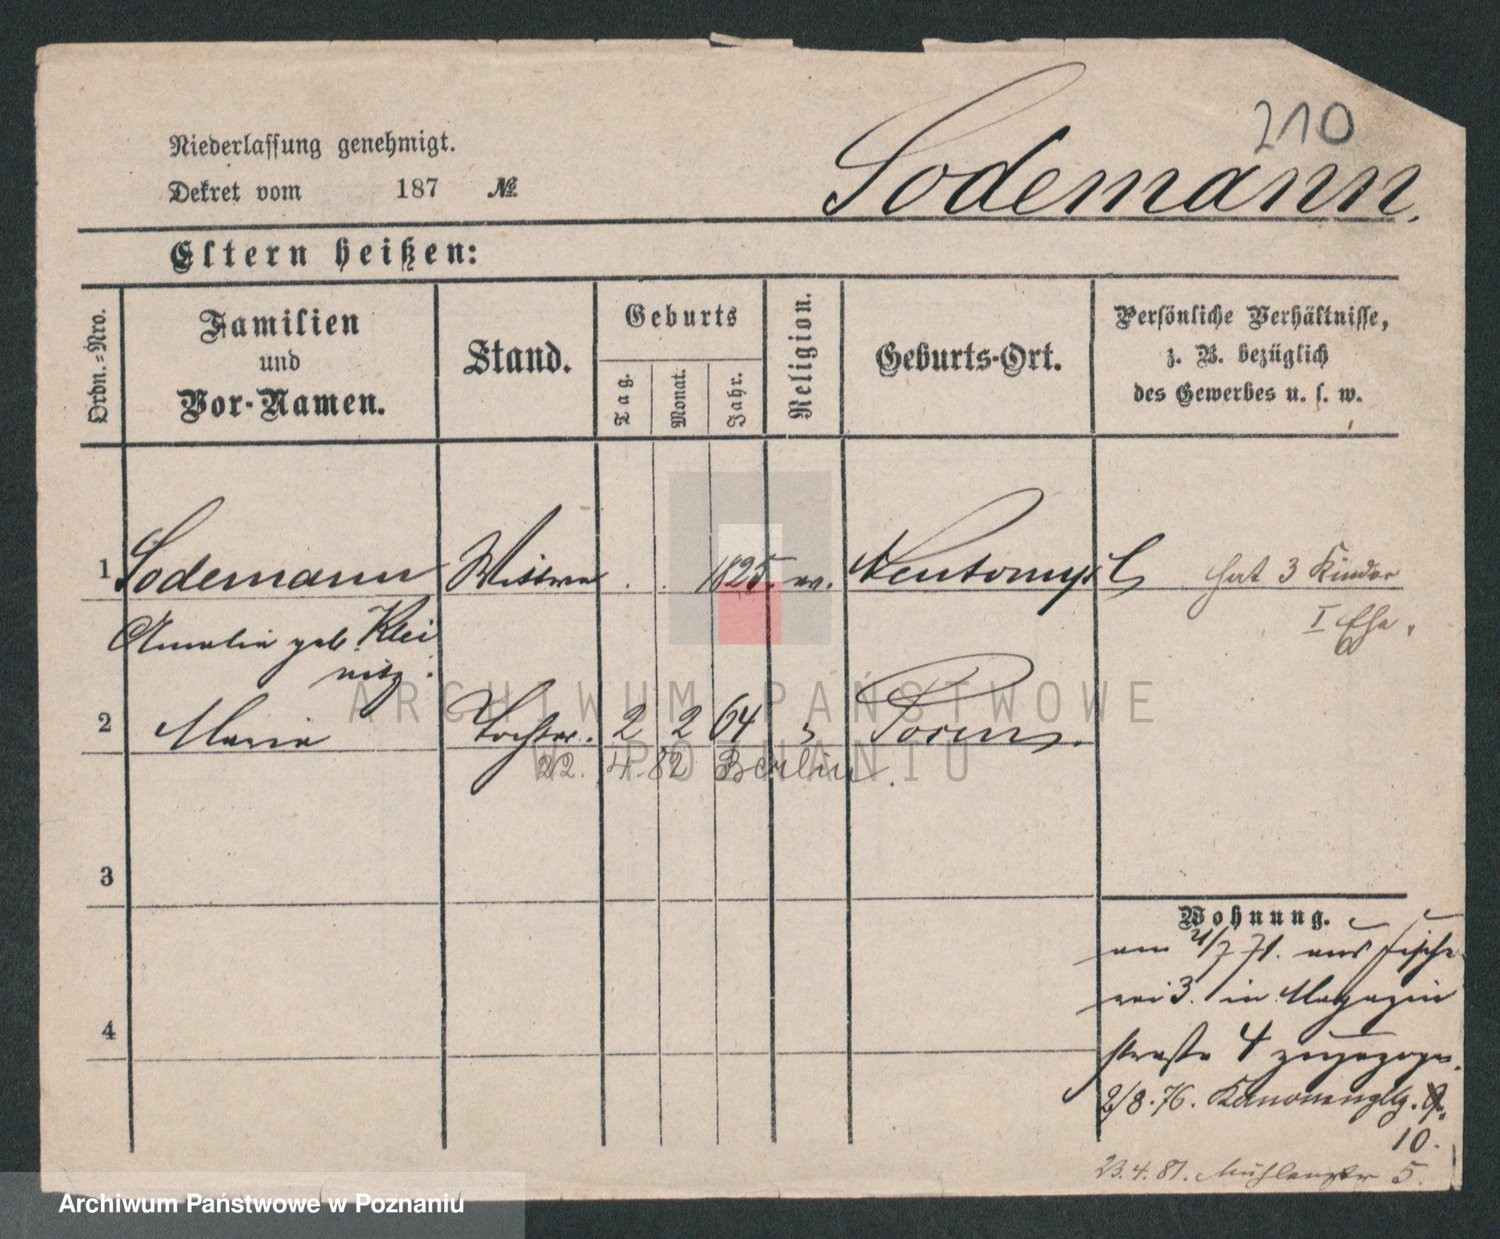 210
Niederlassung genehmigt.
Sodemann.
Dekret vom 187 №
Eltern heißen:
Ordn.=Nro.
Familien
und
Vor-Namen.
Stand.
Geburts
Tag.
Monat.
Jahr.
Religion.
Geburts-Ort.
Persönliche Verhältnisse,
z. B. bezüglich
des Gewerbes u. s. w.
1 Sodemann Wittwe . . 1825. ev. Neutomysl hat 3 Kinder
I Ehe.
Amalie geb. Klei
nitz.
2 Maria Tochter. 2 2 64 " Posen.
22. 4. 82 Berlin.
3
4
Wohnung.
am 21/7 71. aus Fische
rei 3. in Magazin
straße 4 zugezogen.
2/8.76. Kanonenpltz. 9.
10.
23.4.81. Mühlenstr 5.
ARCHIWUM PAŃSTWOWE
W POZNANIU
Archiwum Państwowe w Poznaniu